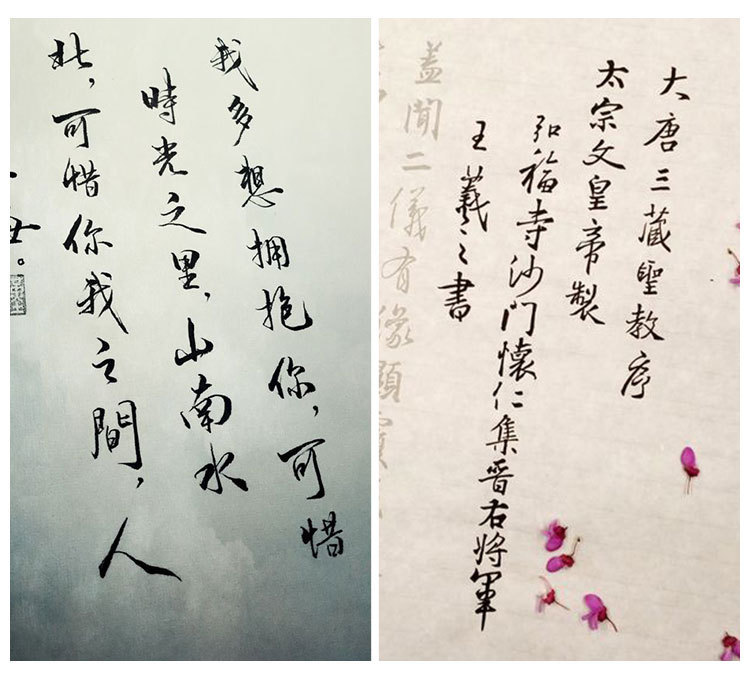 我多想拥抱你，可惜
時光之里，山南水
北，可惜你我之間，人
大唐三藏聖教序
太宗文皇帝製
弘福寺沙門懷仁集晋右将軍
王羲之書
盖聞二儀有像顯